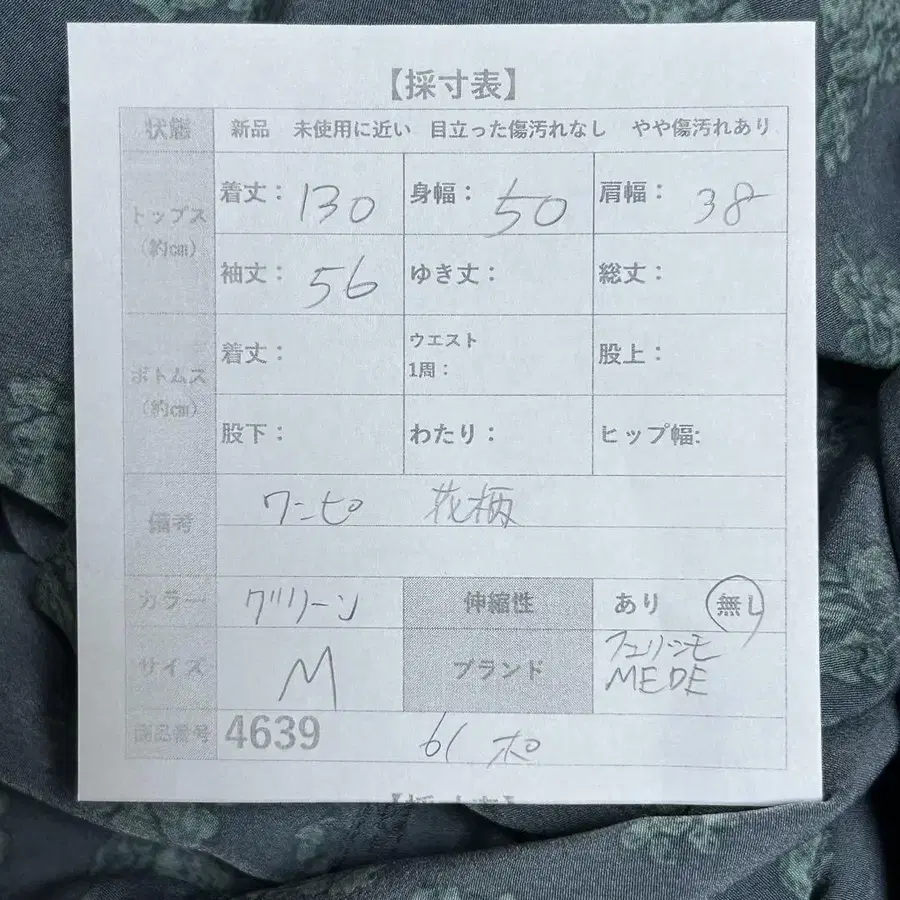 【採寸表】
状態 新品 未使用に近い 目立った傷汚れなし やや傷汚れあり
トップス (約cm) 着丈: 130 身幅: 50 肩幅: 38
袖丈: 56 ゆき丈: 総丈:
ボトムス (約cm) 着丈: ウエスト 1周: 股上:
股下: わたり: ヒップ幅:
備考 ワンピ 花柄
カラー グリーン 伸縮性 あり 無し
サイズ M ブランド フェリシモ
MEDE
商品番号 4639 61 ポ
【採寸表】